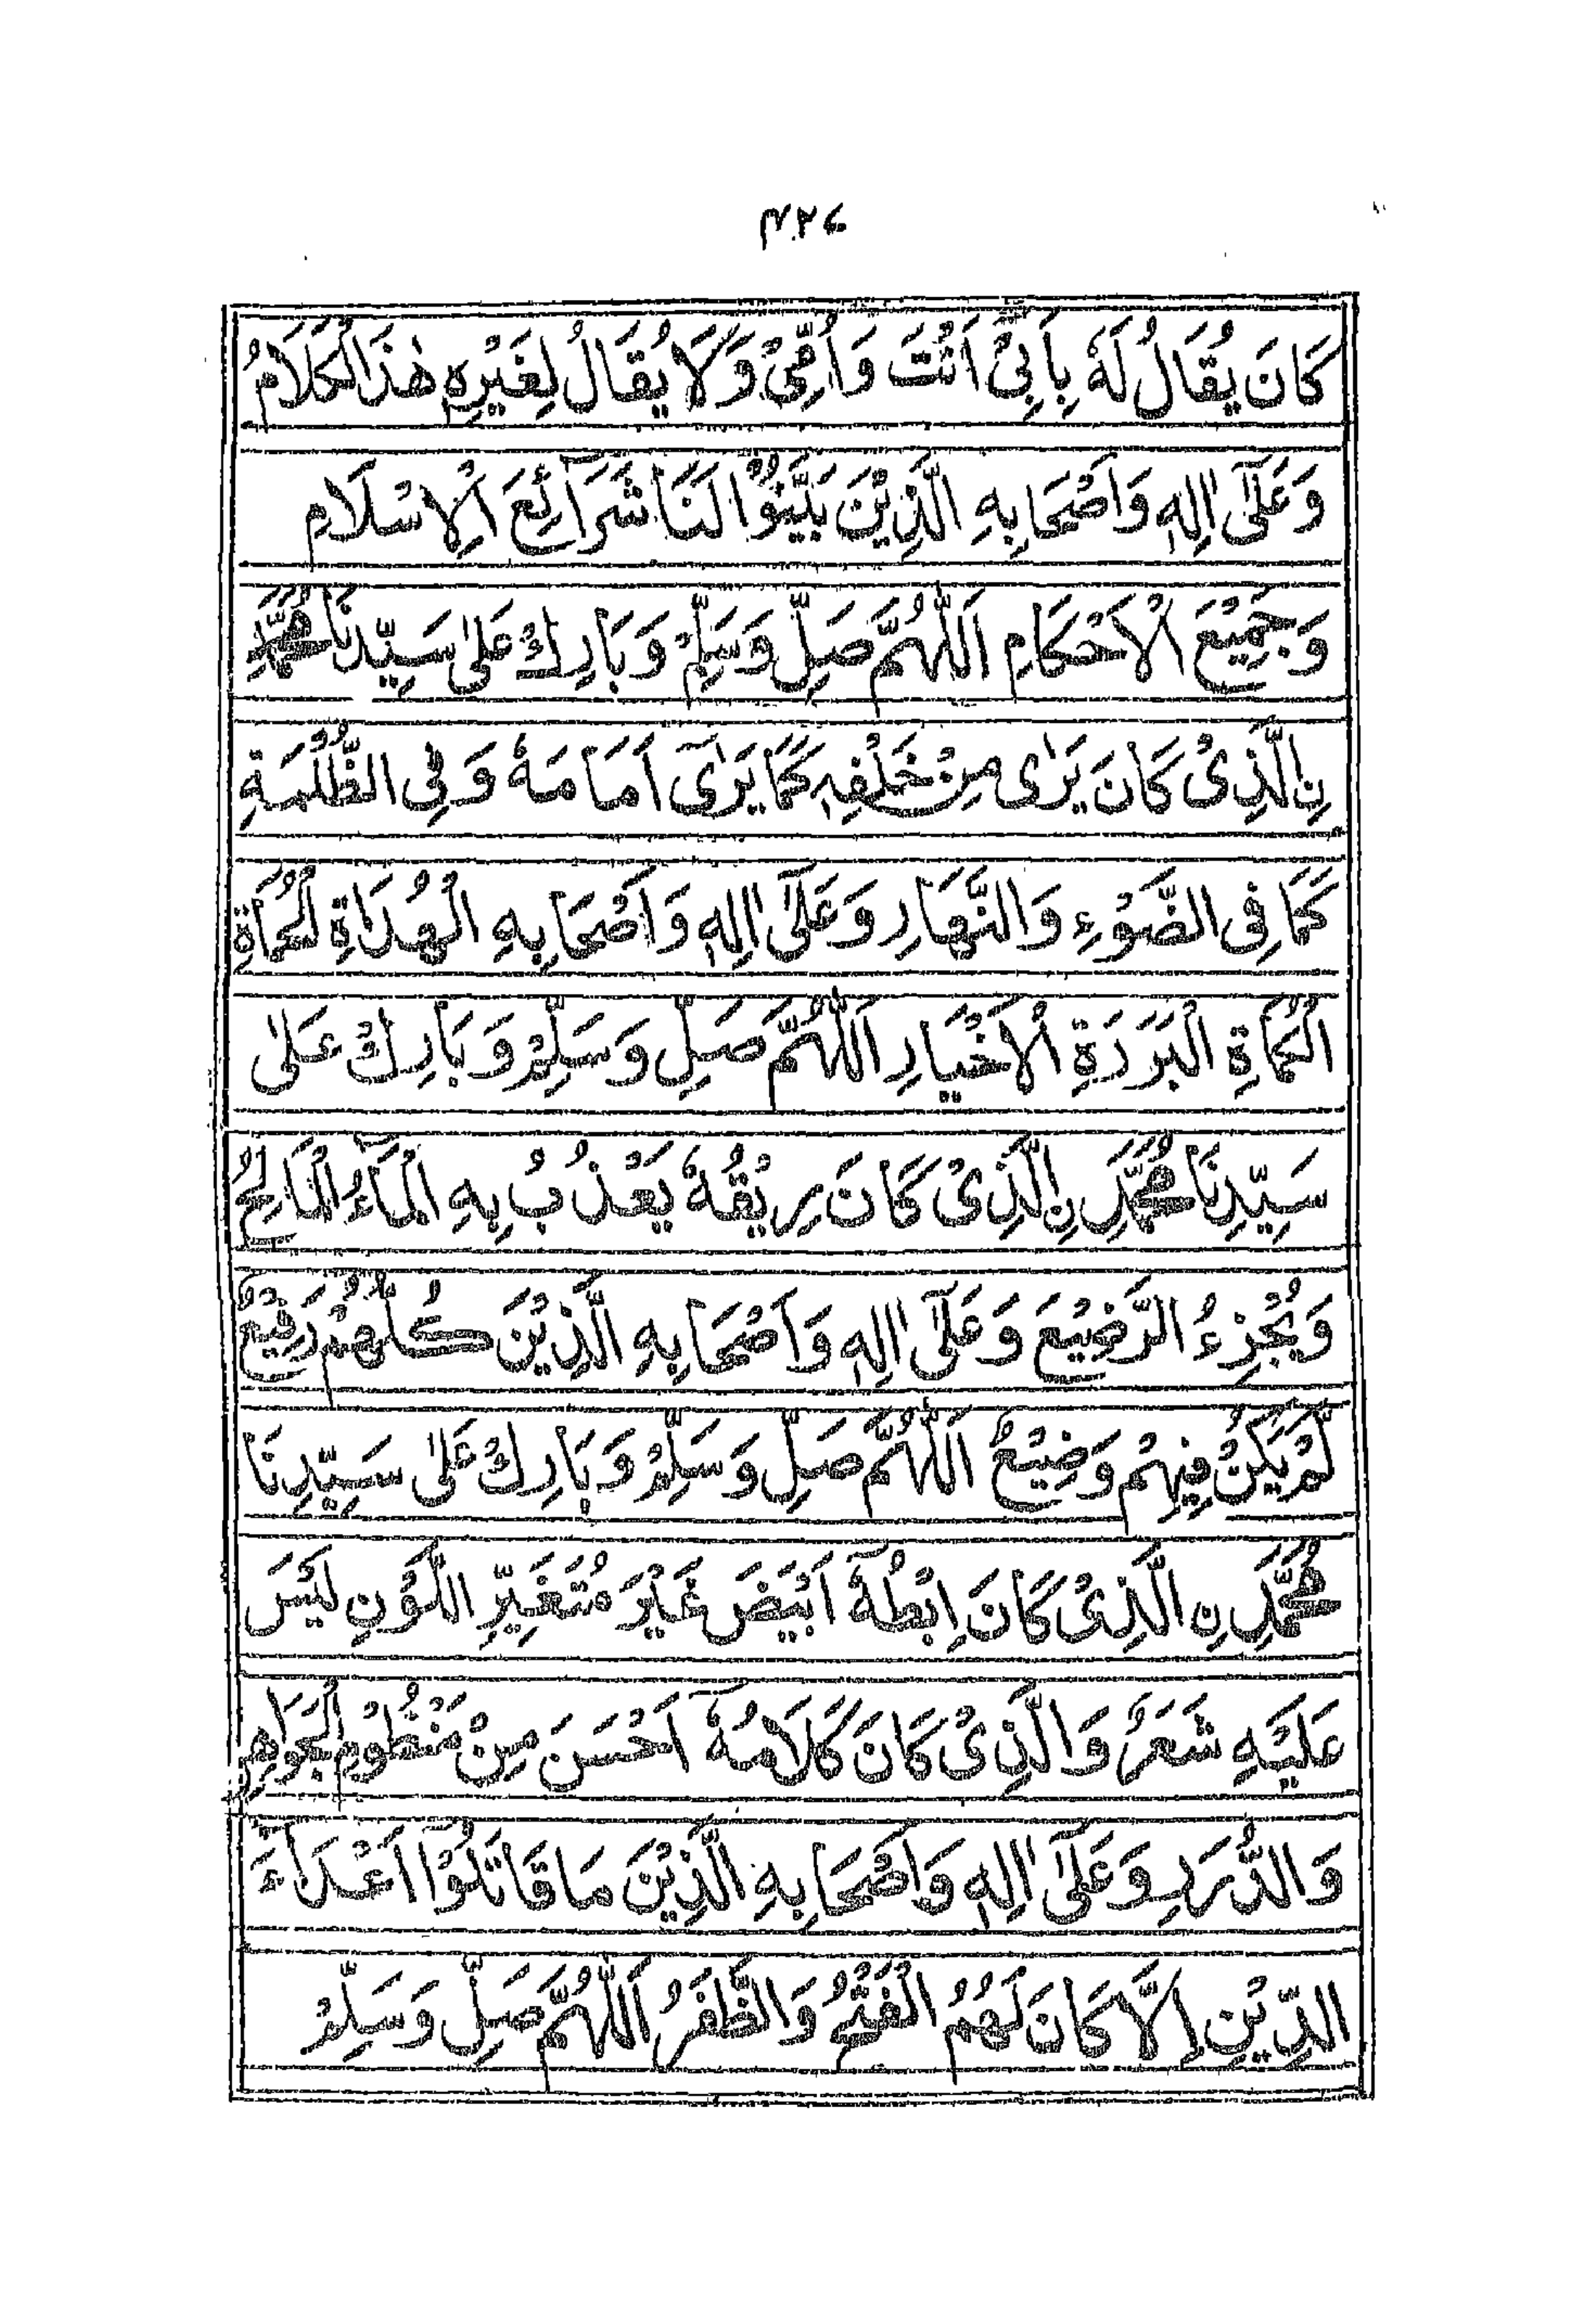 كَانَ يُقَالُ لَهٗ بِاَبِيْ اَنْتَ وَاُمِّيْ وَلَا يُقَالُ لِغَيْرِهٖ هٰذَا الْكَلَامُ
وَعَلٰٓى اٰلِهٖ وَاَصْحَابِهِ الَّذِيْنَ بَيَّنُوْا لَنَا شَرَآئِعَ الْاِسْلَامِ
وَجَمِيْعَ الْاَحْكَامِ اَللّٰهُمَّ صَلِّ وَسَلِّمْ وَبَارِكْ عَلٰى سَيِّدِنَا مُحَمَّدِ
نِ الَّذِيْ كَانَ يَرٰى مِنْ خَلْفِهٖ كَمَا يَرٰىٓ اَمَامَهٗ وَفِي الظُّلْمَةِ
كَمَا فِي الضَّوْءِ وَالنَّهَارِ وَعَلٰٓى اٰلِهٖ وَاَصْحَابِهِ الْهُدَاةِ
الْبَرَرَةِ الْاَخْيَارِ اَللّٰهُمَّ صَلِّ وَسَلِّمْ وَبَارِكْ عَلٰى
سَيِّدِنَا مُحَمَّدِ نِ الَّذِيْ كَانَ رِيْقُهٗ يَعْذُبُ بِهِ الْمَآءُ الْمَالِحُ
وَيُجْزِءُ الرَّضِيْعَ وَعَلٰٓى اٰلِهٖ وَاَصْحَابِهِ الَّذِيْنَ كُلُّهُمْ رَفِيْعٌ
لَمْ يَكُنْ فِيْهِمْ وَضِيْعٌ اَللّٰهُمَّ صَلِّ وَسَلِّمْ وَبَارِكْ عَلٰى سَيِّدِنَا
مُحَمَّدِ نِ الَّذِيْ كَانَ اِبْطُهٗٓ اَبْيَضَ غَيْرَ مُتَغَيِّرِ اللَّوْنِ لَيْسَ
عَلَيْهِ شَعَرٌ وَالَّذِيْ كَانَ كَلَامُهٗٓ اَحْسَنَ مِنْ مَنْظُوْمِ الْجَوَاهِرِ
وَالدُّرَرِ وَعَلٰٓى اٰلِهٖ وَاَصْحَابِهِ الَّذِيْنَ مَا قَاتَلُوْٓا اَعْدَآءَ
الدِّيْنِ اِلَّا كَانَ لَهُمُ الْفَتْحُ وَالظَّفَرُ اَللّٰهُمَّ صَلِّ وَسَلِّمْ